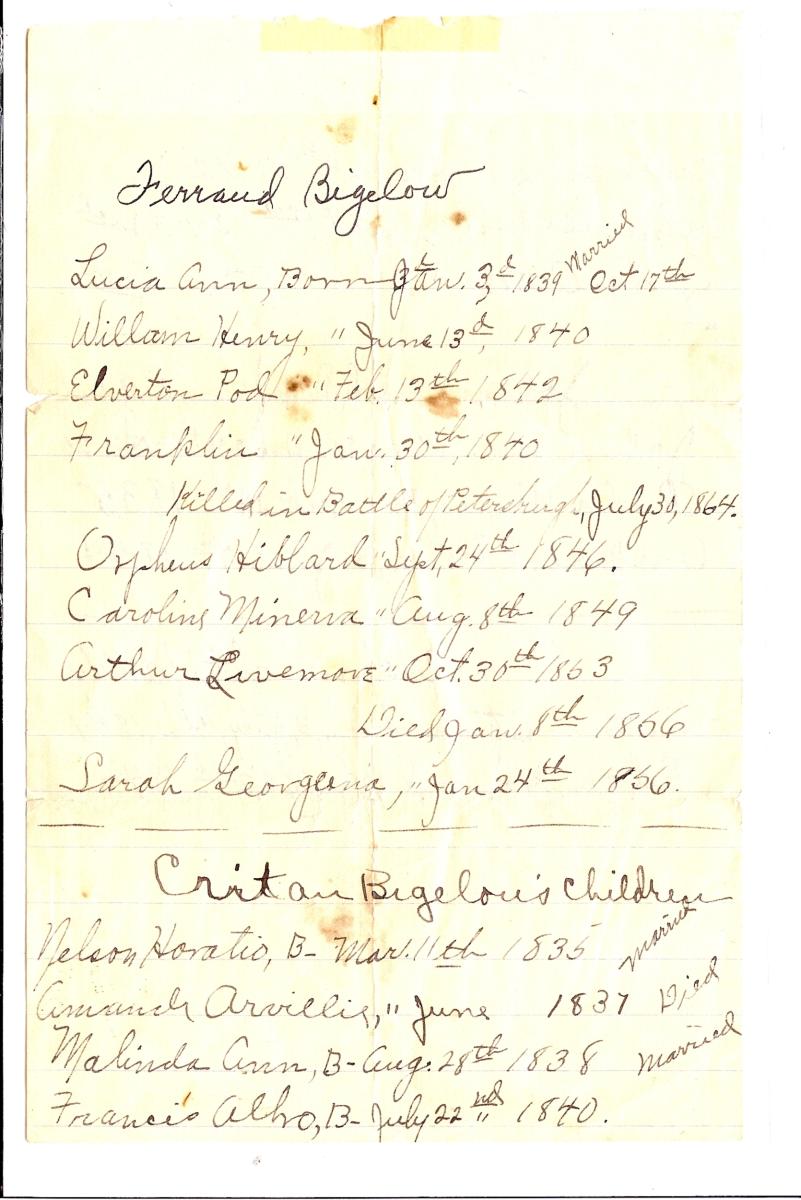 Ferrand Bigelow
Married
Lucia Ann, Born Jan. 3,d 1839 Oct 17th
Willam Henry, " June 13d, 1840
Elverton Pod " Feb. 13th 1842
Franklin " Jan. 30th, 1840
Killed in Battle of Petersburgh, July 30, 1864.
Orpheus Hibbard " Sept, 24th 1846.
Caroline Minerva " Aug. 8th 1849
Arthur Livemore " Oct. 30th 1853
Died Jan. 8th 1856
Sarah Georgeana, " Jan 24th 1856.
Bigelow's Children
Nelson Horatio, B- Mar. 11th 1835 Married
Amanda Arvillia, " June 1837 Died
Malinda Ann, B- Aug. 28th 1838 Married
Francis Albro, B- July 22nd 1840.